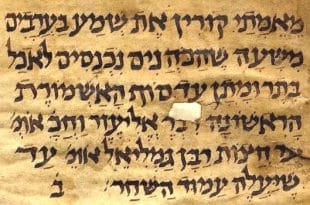 מאמתי קורין את שמע בערבים
משעה שהכהנים נכנסים לאכל
בתרומתן עד סוף האשמורת
הראשונה אליעזר וחכ׳ אומ׳
עד חצות רבן גמליאל אומ׳ עד
שיעלה עמוד השחר ב